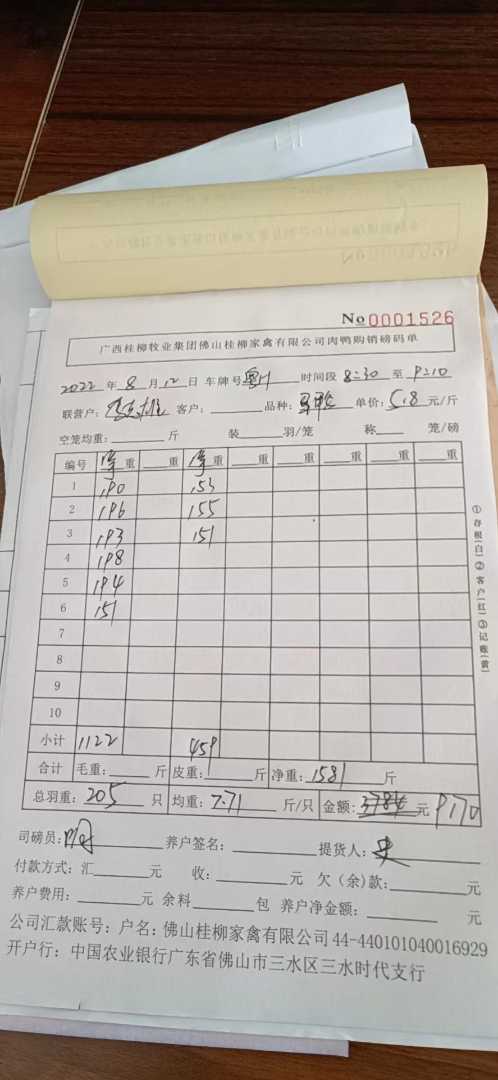 No 0001526
广西桂柳牧业集团佛山桂柳家禽有限公司肉鸭购销磅码单
2022 年 8 月 12 日 车牌号 时间段 8:30 至 9:10
联营户: 客户: 品种: 单价: 5.8 元/斤
空笼均重: 斤 装 羽/笼 称 笼/磅
编号 净重 重 净重 重 重 重 重 重
1 190 153
2 196 155
3 193 151
4 198
5 194
6 151
7
8
9
10
小计 1122 459
合计 毛重: 斤 皮重: 斤 净重: 1581 斤
总羽重: 205 只 均重: 7.71 斤/只 金额: 3784 元 9170
司磅员: 养户签名: 提货人:
付款方式: 汇 元 收: 元 欠(余)款: 元
养户费用: 元 余料 包 养户净金额: 元
公司汇款账号: 户名: 佛山桂柳家禽有限公司 44-440101040016929
开户行: 中国农业银行广东省佛山市三水区三水时代支行
①存根(白)②客户(红)③记账(黄)